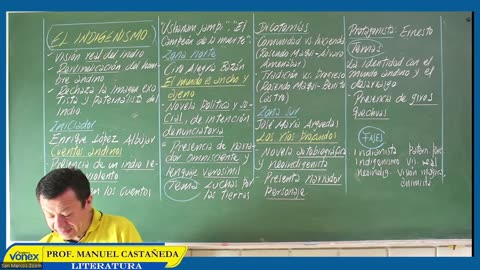 EL INDIGENISMO
- Visión real del indio
- Reivindicación del hom
bre andino
- Rechaza la imagen exo
tista y paternalista del
indio
Iniciador
Enrique López Albújar
Cuentos andinos
Presencia de un indio re-
violento
en los Cuentos
"Ushanam jampi": "El
Campeón de la muerte"
Zona norte
Ciro Alegría Bazán
El mundo es ancho y
ajeno
- Novela política y so
cial, de intención
denunciatoria
- Presencia de narra
dor omnisciente y
lenguaje verosímil
Tema: Luchas por
las tierras
Dicotomías
Comunidad vs hacienda
(Rosendo Maqui - Álvaro
Amenábar)
- Tradición vs Progreso
(Rosendo Maqui - Benito
Castro)
Zona sur
José María Arguedas
Los ríos profundos
- Novela autobiográfica
y neoindigenista
- Presenta narrador
Personaje
Protagonista: Ernesto
Temas
La identidad con el
mundo andino y el
desarraigo
- Presencia de giros
quechuas
FASES
Indianista Patern.
Indigenismo Vis. real
Neoindig. Visión mágica,
animista
VONEX
San Marcos Zoom
PROF. MANUEL CASTAÑEDA
LITERATURA